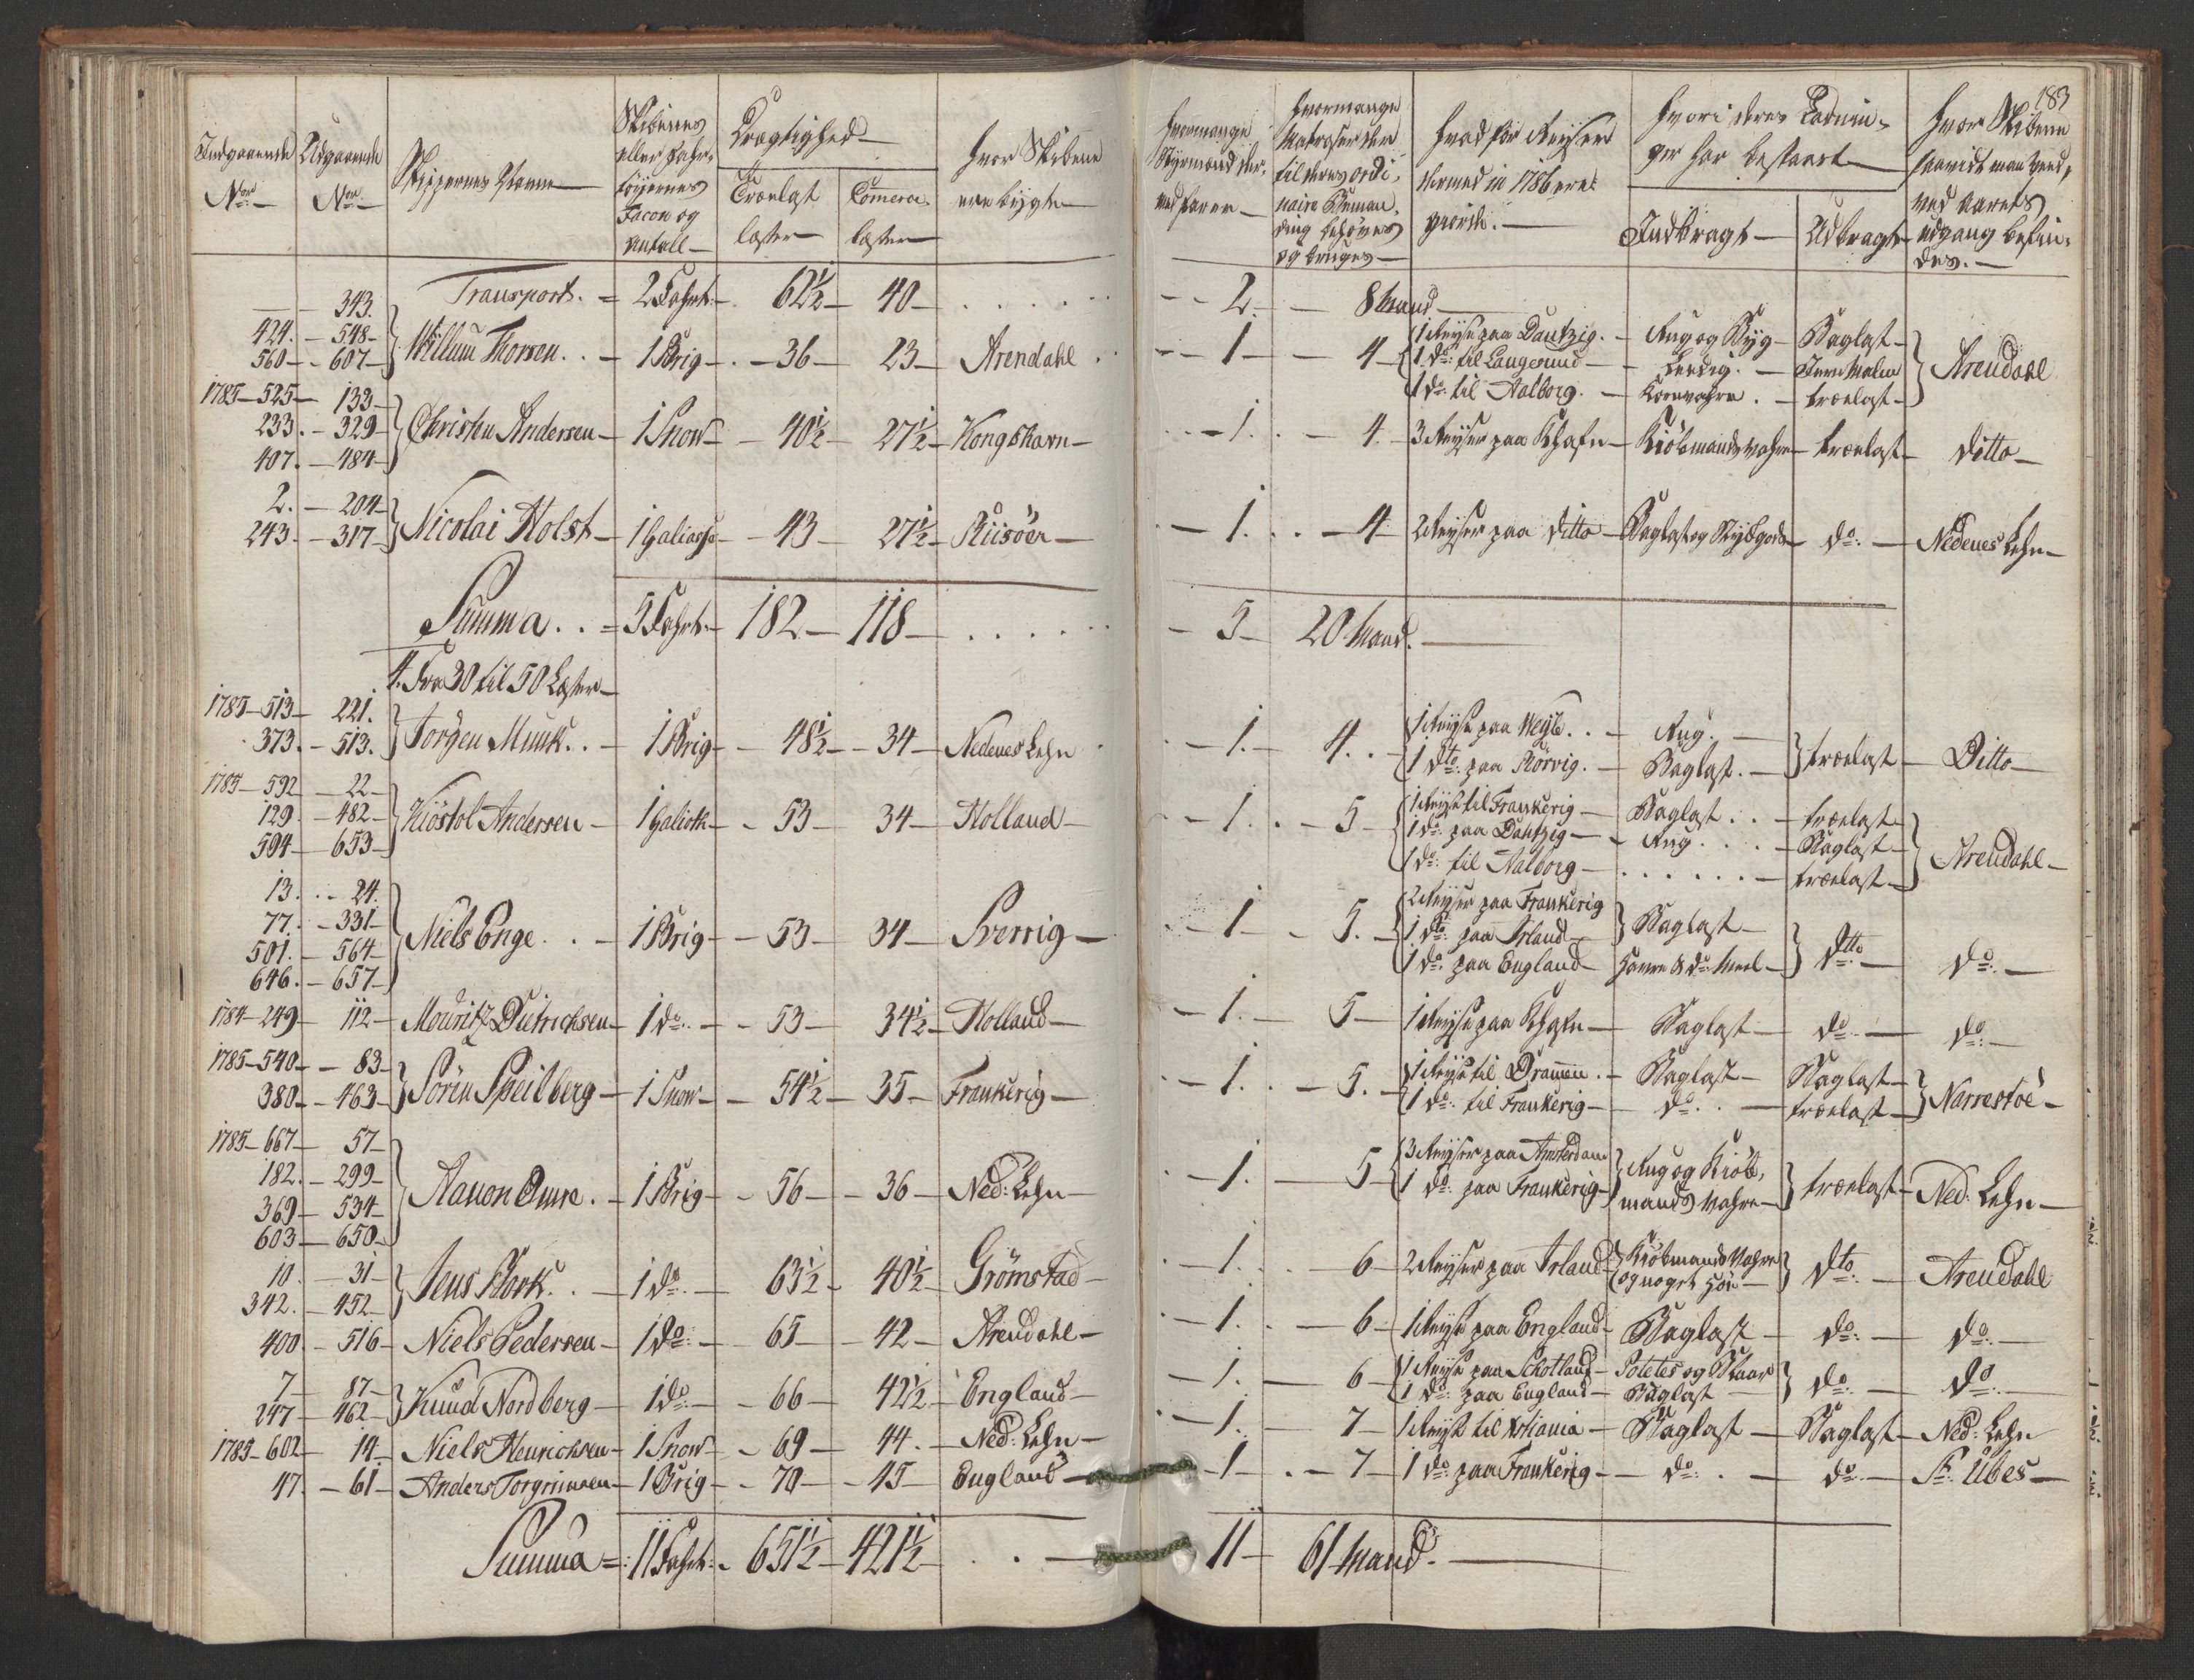 183
Indgaaende Nro
Udgaaende Nro
Skippernes Navne
Skibenes eller Fahrtöyernes Facon og Antall
Drægtighed
Trælast læster
Commerce læster
hvor Skibene ere bygte
hvormange Styrmænd der med farer
hvormange Matroser der til deres ordinaire Bemanding behöves og bruges
hvad for Reyser dermed in 1786 ere giorte.
hvori deres Ladninger har bestaaet
Indbragt
Udbragt
hvor Skibene saavidt man veed, ved aarets udgang befindes.
Transport. = 2 Fahrt. 62½ 40 2 8 Mand
343.
424. 548 Willum Thorsen 1 Brig 36 23 Arendahl 1 4 1 Reyse paa Dantzig. Rug og Byg Baglast
560 607 1 do: til Langesund Ledig. Jern Malm Arendahl
1 do: til Aalborg. Kornvahre. trælast
1785 525 133
233. 329 Christen Andersen 1 Snow 40½ 27½ Kongshavn 1. 4. 3 Reyser paa Khafn Kiöbmands vahre trælast ditto
407. 484
2. 204
243. 317 Nicolai Holst 1 Galiasse 43 27½ Riisöer 1. 4 2 Reyser paa ditto Baglast og Stykgods do: Nedenes Lehn
Summa = 5 Fahrt. 182 118 5 20 Mand.
4. Fra 30 til 50 Læster
1785 513 221.
373. 513. Jorgen Munk 1 Brig 48½ 34 Nedenes Lehn 1. 4. 1 Reyse paa Weyle Rug. trælast Ditto
1 dto: paa Rörvig. Baglast.
1785 592 22
129. 482 Kiöstol Andersen 1 Galioth 53 34 Holland 1. 5 1 Reyse til Frankerig Baglast trælast
594 653 1 do: paa Dantzig Rug Baglast Arendahl
1 do: til Aalborg trælast
13. 24.
77. 331 2 Reyser paa Frankerig
501. 564 Niels Enge 1 Brig 53 34 Sverrig 1 5. 1 do: paa Irland Baglast dtto do:
646. 657 1 do: paa England
1784 249 112 Mouritz Dietrichsen 1 do: 53 34½ Holland 1. 5 1 Reyse paa Khafn Baglast do: do:
1785 540 83
380 463 Sören Speilberg 1 Snow 54½ 35 Frankerig 1. 5. 1 Reyse til Drammen. Baglast Baglast Narrestöe
1 do: til Frankerig do: trælast
1785 667 57
182. 299 3 Reyser paa Amsterdam Rug og Kiöb,
369 534 Aanon Omre. 1 Brig 56 36 Ned: Lehn 1. 5 1 do: paa Frankerig mands vahre trælast Ned: Lehn
603 650
10. 31
342. 452 Jens Bork. 1 do: 63½ 40½ Grömstad 1. 6 2 Reyser paa Irland Kiöbmands Vahre og noget dto: Arendahl
400. 516 Niels Pedersen 1 do: 65 42 Arendahl 1. 6 1 Reyse paa England Baglast do: do:
7 87
247 462 Knud Nordberg 1 do: 66 42½ England 1. 6 1 Reyse paa Schotland Potetes og do: do:
1 do: paa England Baglast
1785 602 14 Niels Henrichsen 1 Snow 69 44. Ned: Lehn 1. 7 1 Reyse til Xtiania Baglast Baglast Ned: Lehn
47. 61 Anders Torgrimsen 1 Brig 70 45 England 1 7 1 do: paa Frankerig do: do: St: Ubes
Summa =: 11 Fahrt: 651½ 421½ 11 61 Mand.